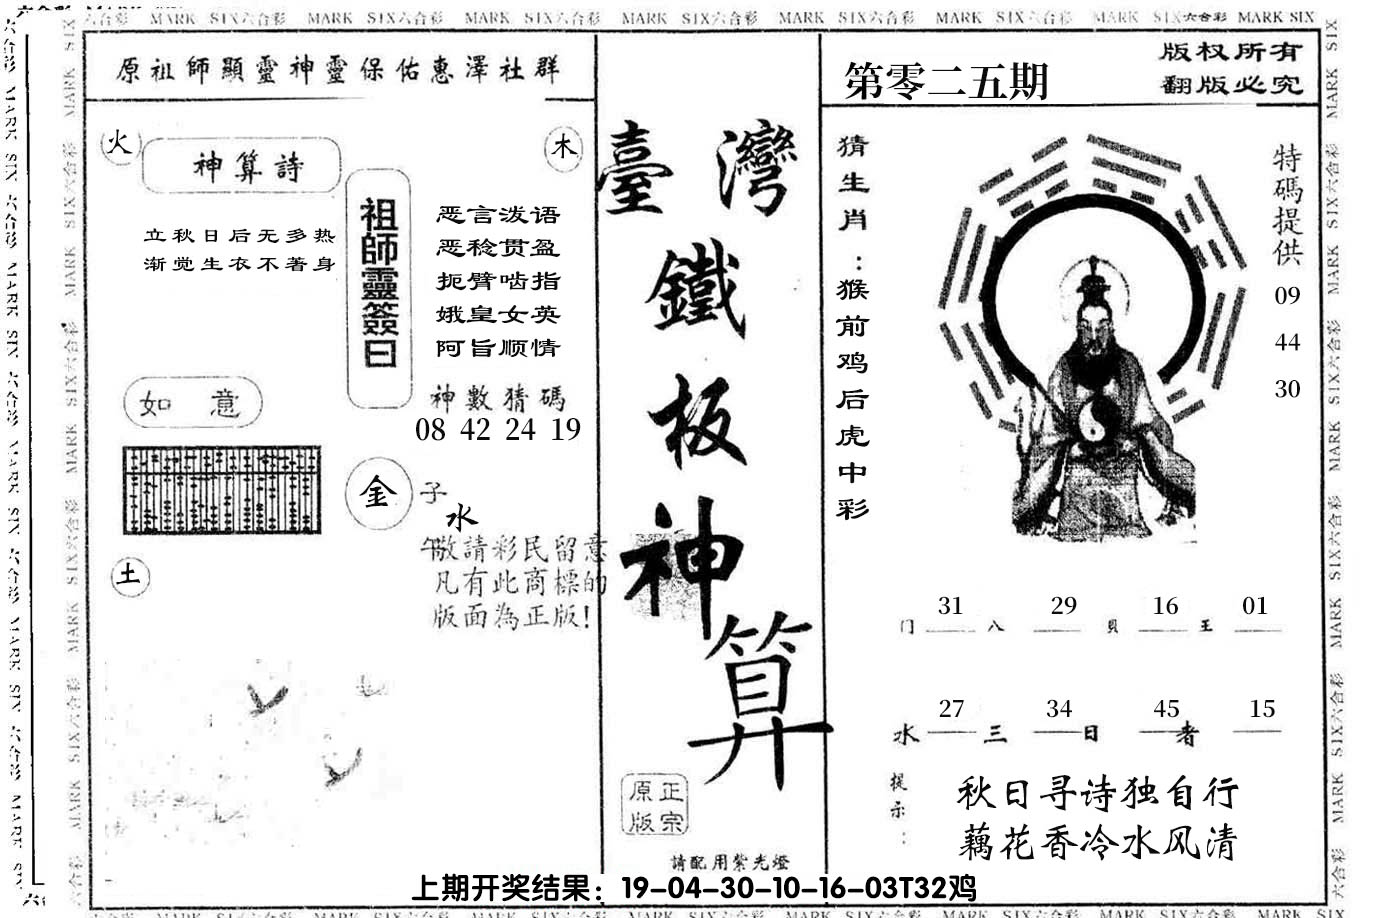 MARK SIX六合彩 MARK SIX六合彩 MARK SIX六合彩 MARK SIX六合彩 MARK SIX六合彩 MARK SIX六合彩 MARK SIX六合彩 MARK SIX
原祖師顯靈神靈保佑惠澤社群
火
神算詩
木
立秋日后无多热
渐觉生衣不著身
祖師靈簽曰
恶言泼语
恶稔贯盈
扼臂啮指
娥皇女英
阿旨顺情
神數猜碼
08 42 24 19
如意
金
子
水
午
敬請彩民留意
凡有此商標的
版面為正版!
土
臺灣
鐵
板
神
算
正宗
原版
請配用紫光燈
第零二五期
版权所有
翻版必究
猜生肖:猴前鸡后虎中彩
特碼提供
09
44
30
门 31 八 29 贝 16 王 01
水 27 三 34 日 45 者 15
提示:
秋日寻诗独自行
藕花香冷水风清
上期开奖结果：19-04-30-10-16-03T32鸡